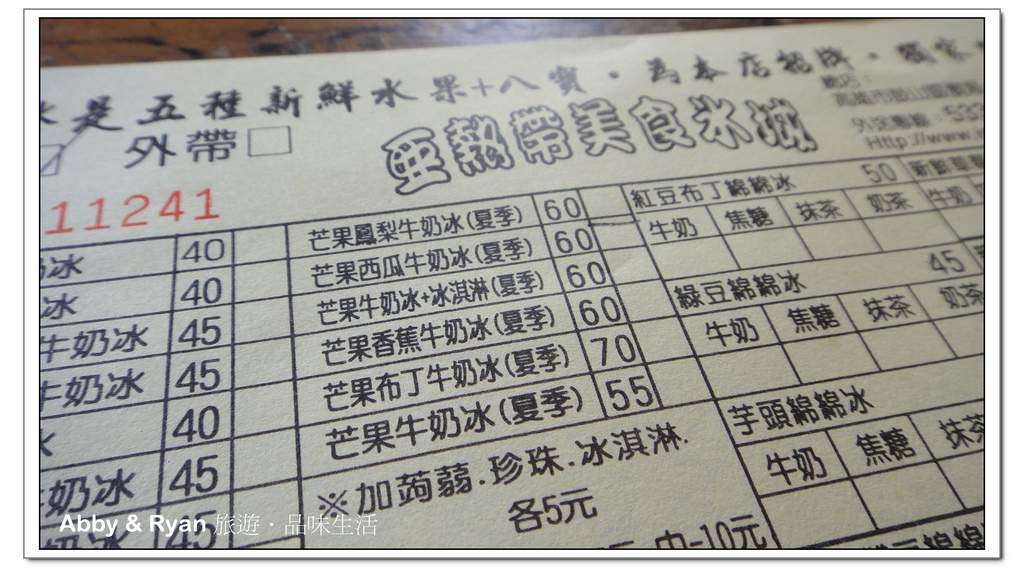 是五種新鮮水果+八寶。為本店招牌。獨家
外帶 亞熱帶美食冰城
外送專線：533
Http://www.
11241
冰 40
冰 40
牛奶冰 45
牛奶冰 45
40
奶冰 45
45
芒果鳳梨牛奶冰(夏季) 60
芒果西瓜牛奶冰(夏季) 60
芒果牛奶冰+冰淇淋(夏季) 60
芒果香蕉牛奶冰(夏季) 60
芒果布丁牛奶冰(夏季) 70
芒果牛奶冰(夏季) 55
※加蒟蒻.珍珠.冰淇淋.
各5元
中-10元
紅豆布丁綿綿冰 50
牛奶 焦糖 抹茶 奶茶
綠豆綿綿冰 45
牛奶 焦糖 抹茶 奶茶
芋頭綿綿冰
牛奶 焦糖 抹茶
新鮮草莓
牛奶
Abby & Ryan 旅遊．品味生活